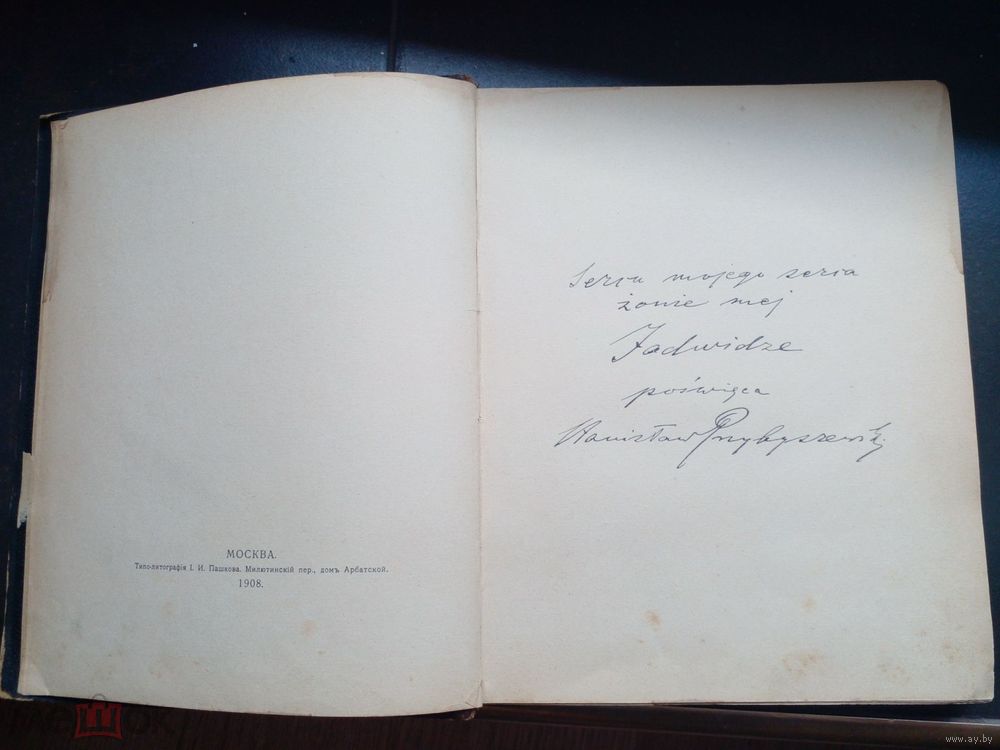 МОСКВА.
Типо-литографія І. И. Пашкова. Милютинскій пер., домъ Арбатской.
1908.
Sercu mojego serca
żonie mej
Jadwidze
poświęca
Stanisław Przybyszewski
www.ay.by